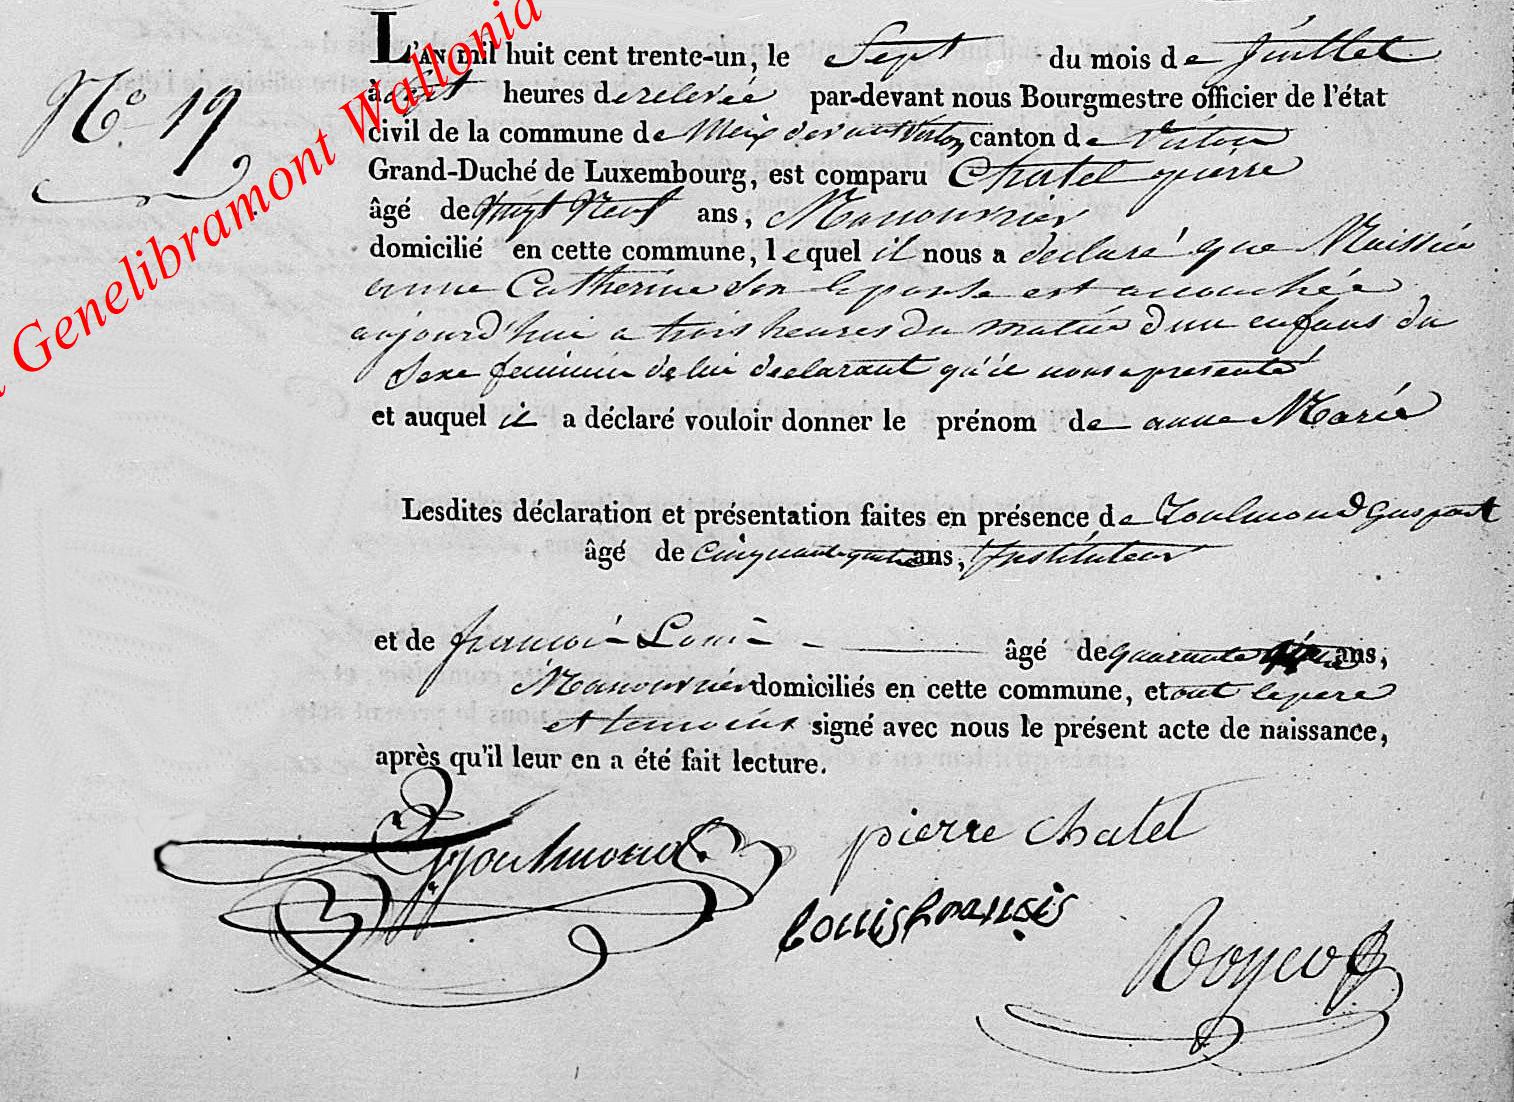 L'AN mil huit cent trente-un, le Sept du mois de Juillet
N° 19
à heures de relevée par-devant nous Bourgmestre officier de l'état
civil de la commune de Meix devant Virton canton de Virton
Grand-Duché de Luxembourg, est comparu Chatel pierre
âgé de Vingt Neuf ans, Manouvrier
domicilié en cette commune, lequel il nous a declaré que Maissin
anne Catherine Son Epouse est accouchée
aujourd'hui a trois heures du matin d'un enfans du
Sexe feminin de lui declarant qu'il nous a presenté
et auquel il a déclaré vouloir donner le prénom de anne Marie
Lesdites déclaration et présentation faites en présence de Toulmond Gaspart
âgé de Cinquante quatre ans, Instituteur
et de francois Louis âgé de quarante ans,
Manouvrier domiciliés en cette commune, et ont le pere
et temoins signé avec nous le présent acte de naissance,
après qu'il leur en a été fait lecture.
Toulmond
pierre chatel
Louis francois
Genelibramont Wallonia